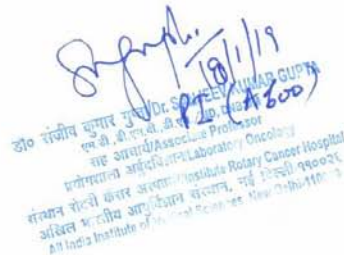 18/1/19
PI (A600)
डॉ० संजीव कुमार गुप्ता/Dr. SANJEEV KUMAR GUPTA
सह आचार्य/Associate Professor
प्रयोगशाला अर्बुदविज्ञान/Laboratory Oncology
संस्थान रोटरी कैंसर अस्पताल/Institute Rotary Cancer Hospital
अखिल भारतीय आयुर्विज्ञान संस्थान, नई दिल्ली-110029
All India Institute of Medical Sciences, New Delhi-110029